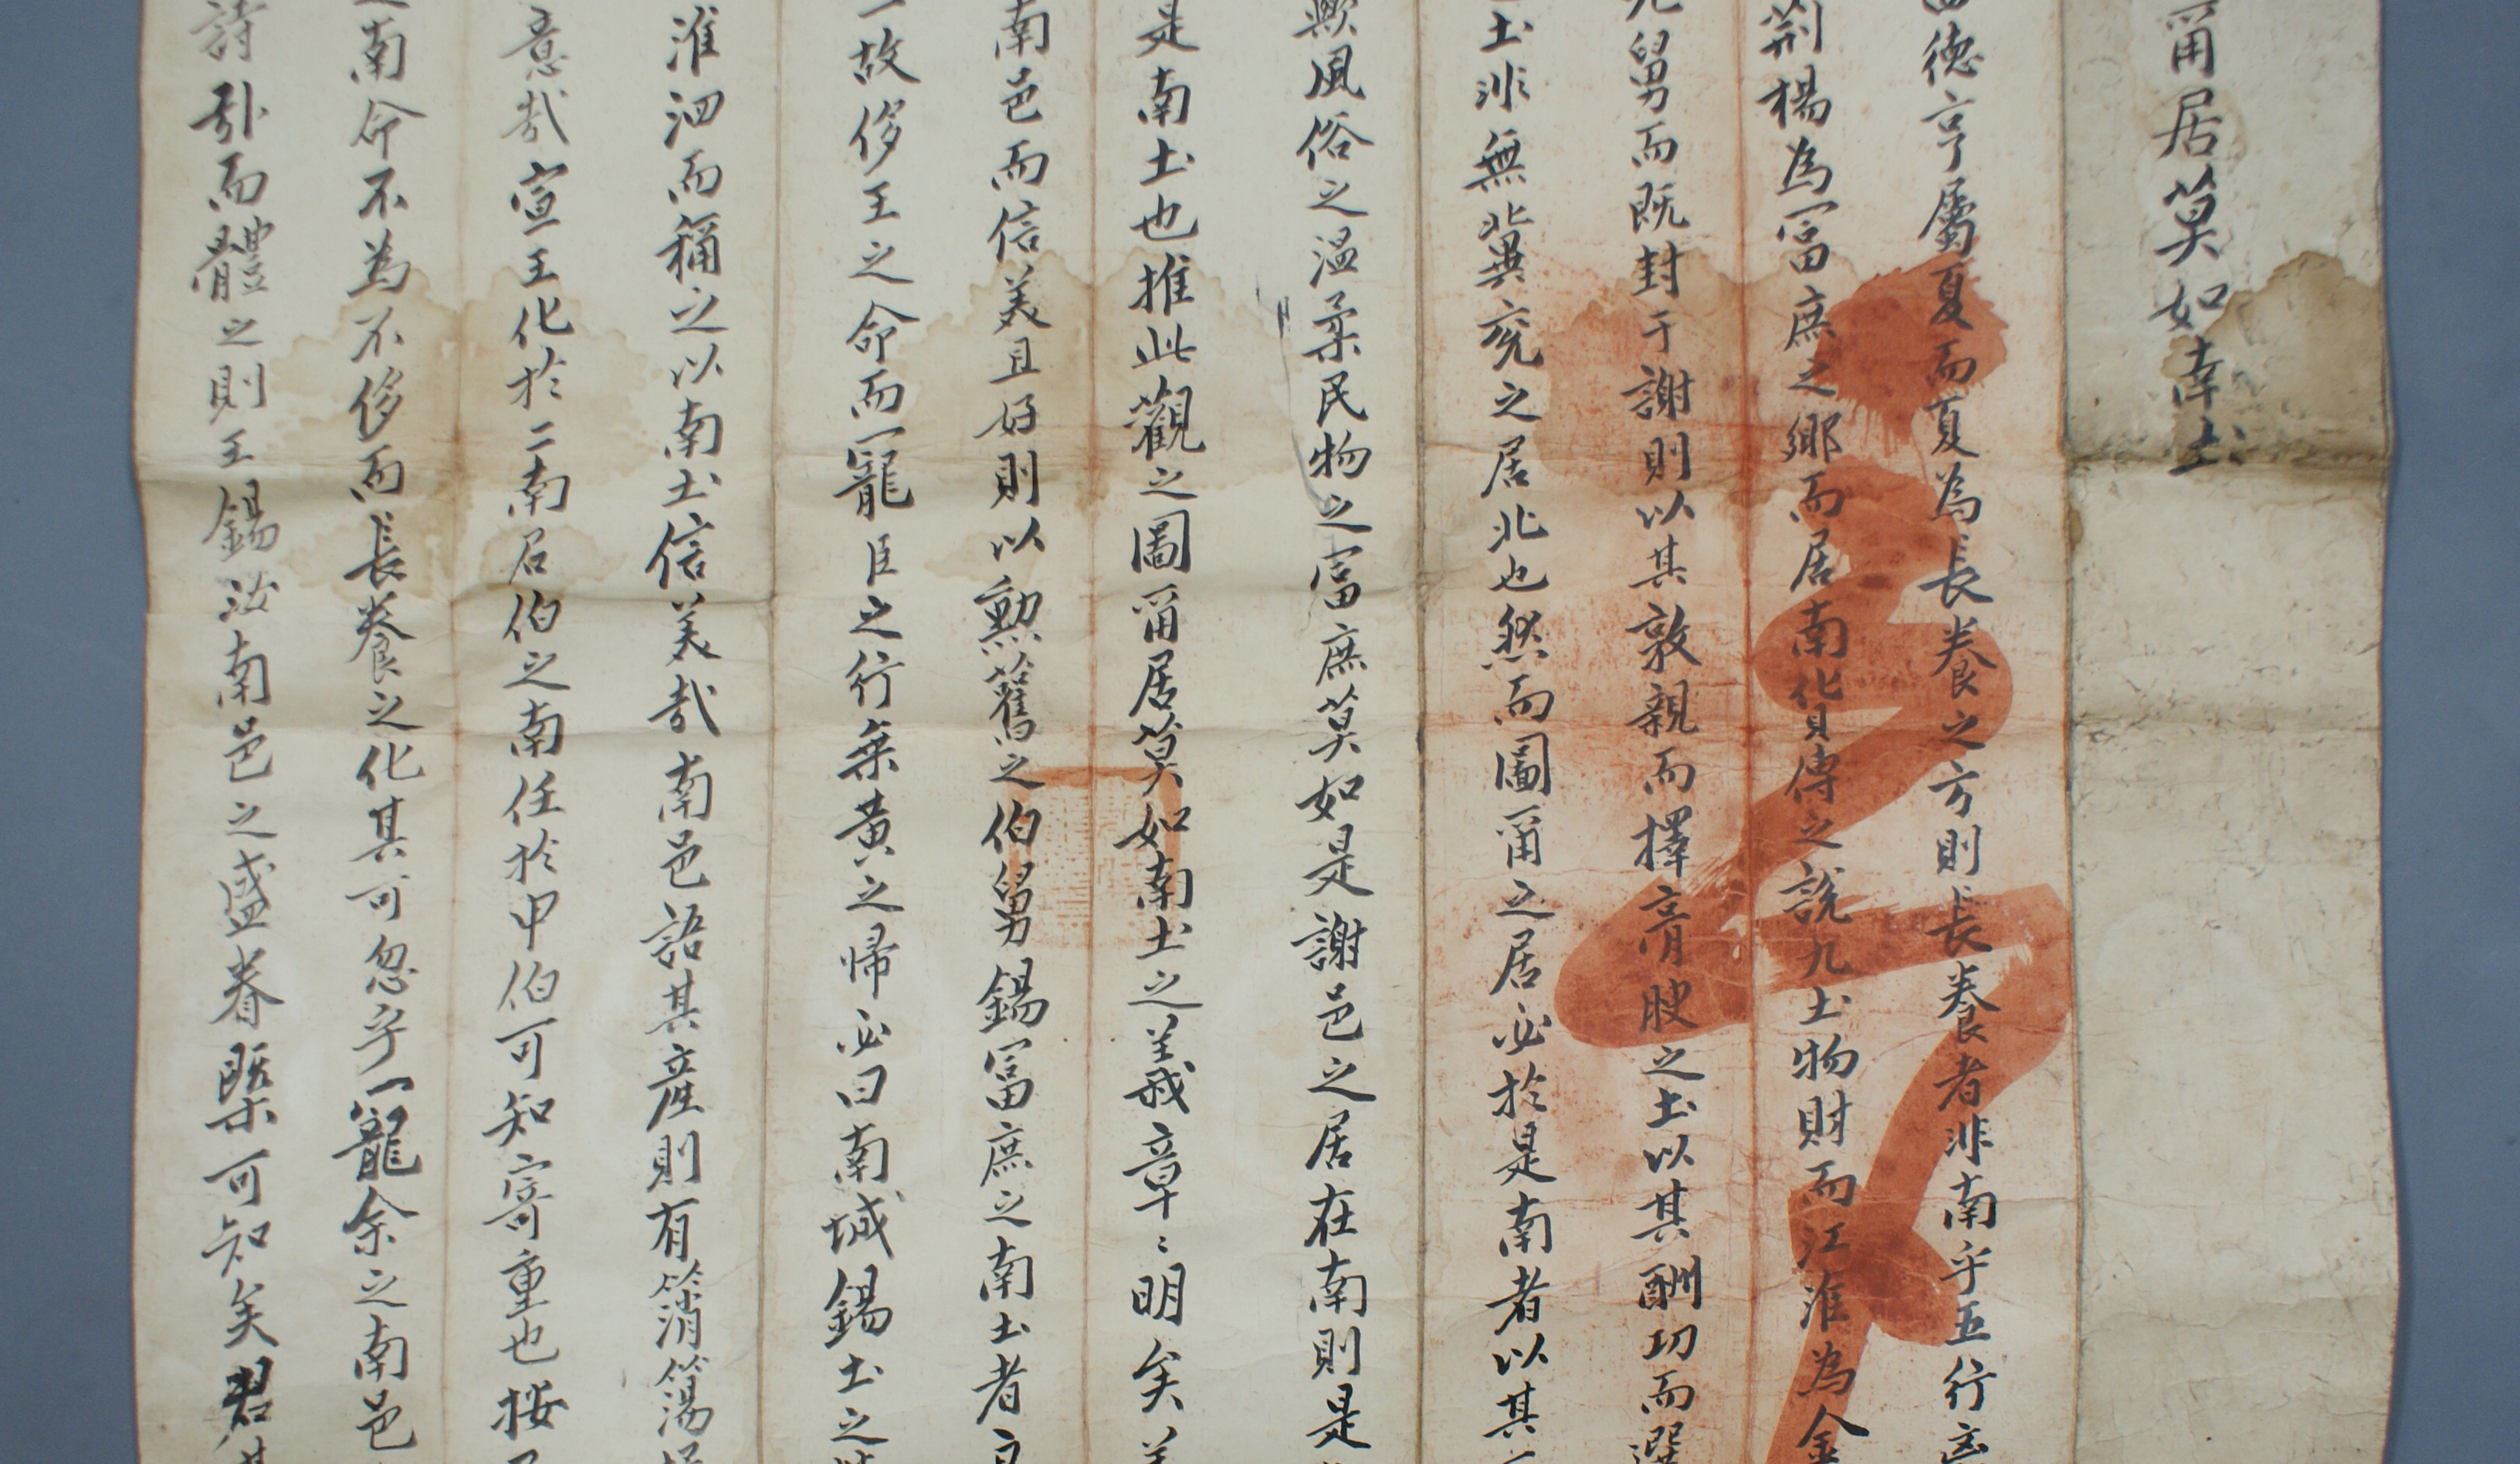 爾居莫如南土
德亨屬夏而夏為長養之方則長養者非南乎五行
荊楊為富庶之鄉而居南貨傳之說九土物財而江淮為金
元舅而既封于謝則以其敦親而擇膏腴之土以其酬功而選
土非無冀兗之居北也然而圖爾之居必於是南者以其
歟風俗之溫柔民物之富庶莫如是謝邑之居在南則是
是南土也推此觀之圖爾居莫如南土之義章〻明矣
南邑而信美且好則以勳舊之伯舅錫富庶之南土者
故侈王之命而寵臣之行乘黃之歸必曰南城錫土之
淮泗而稱之以南土信美哉南邑語其產則有篠簜
意哉宣王化於二南召伯之南任於申伯可知寄重也按
南命不為不侈而長養之化其可忽乎寵余之南邑
詩引而體之則王錫汝南邑之盛眷槩可知矣君